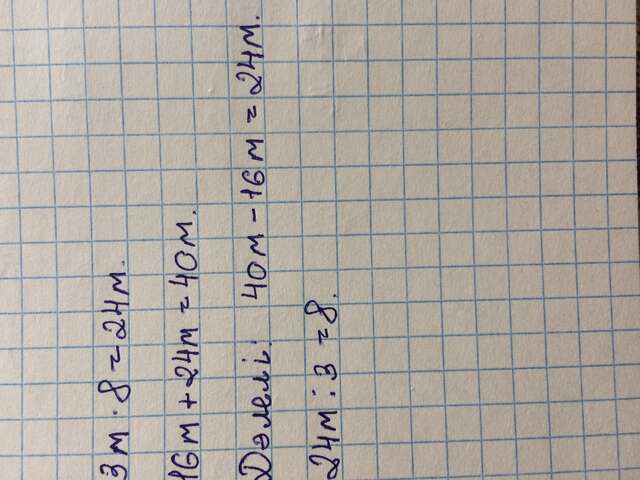 3м · 8 = 24м.
16м + 24м = 40м.
Дәлелі: 40м - 16м = 24м.
24м : 3 = 8.